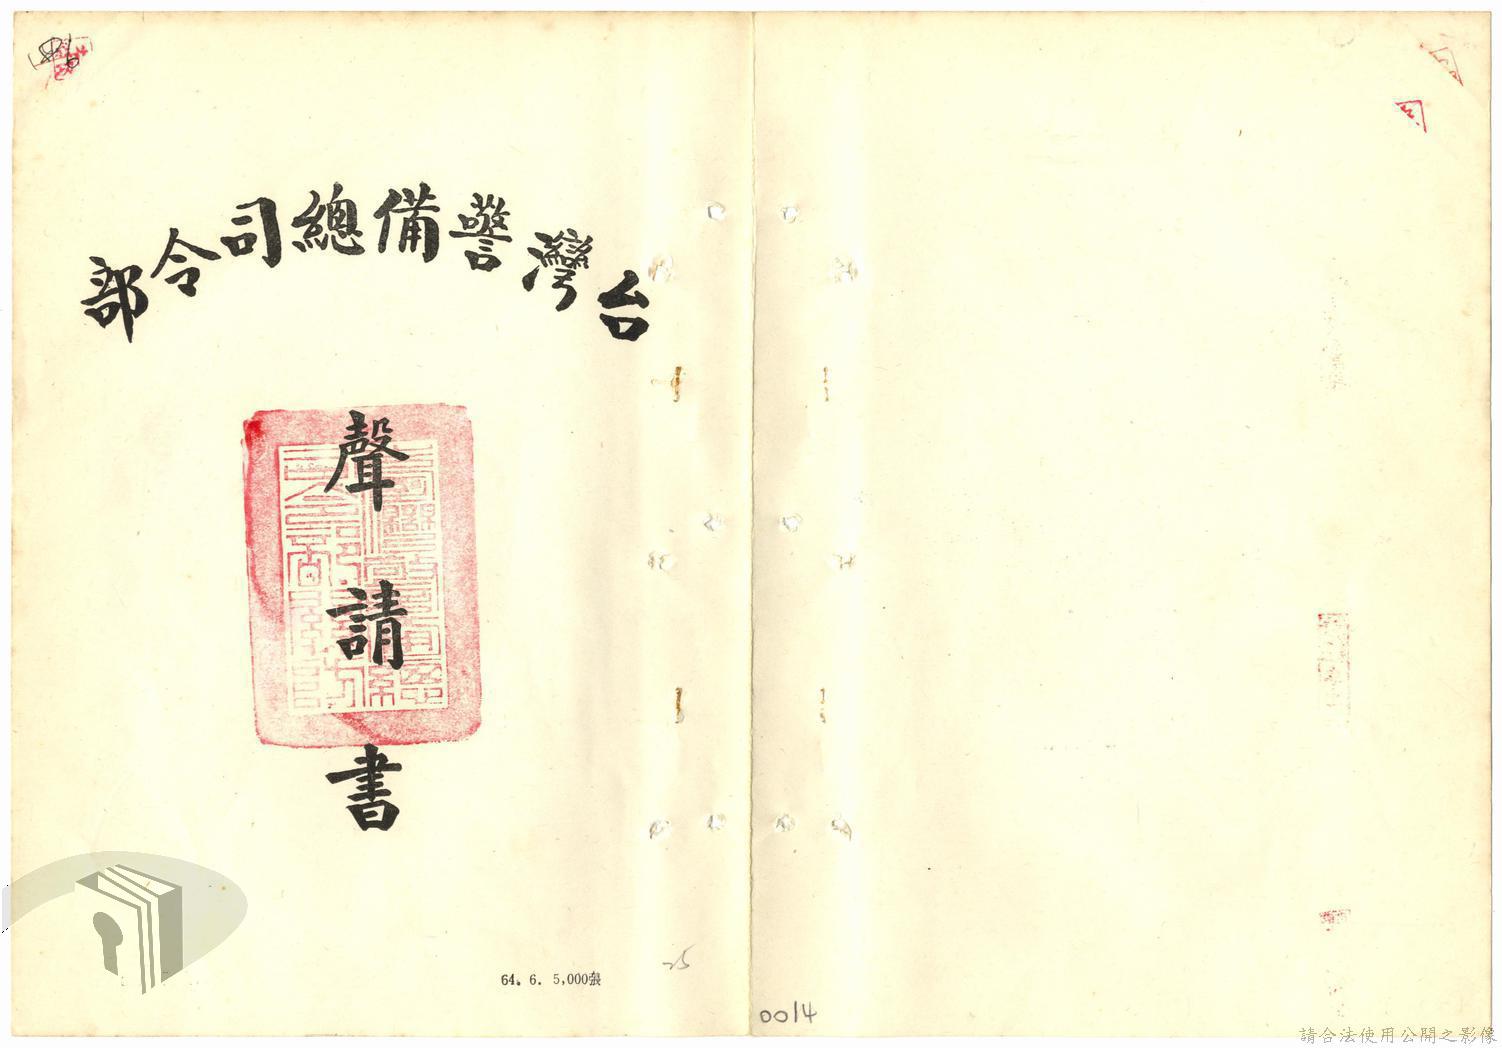 台灣警備總司令部
聲請書
64. 6. 5,000張
25
0014
請合法使用公開之影像